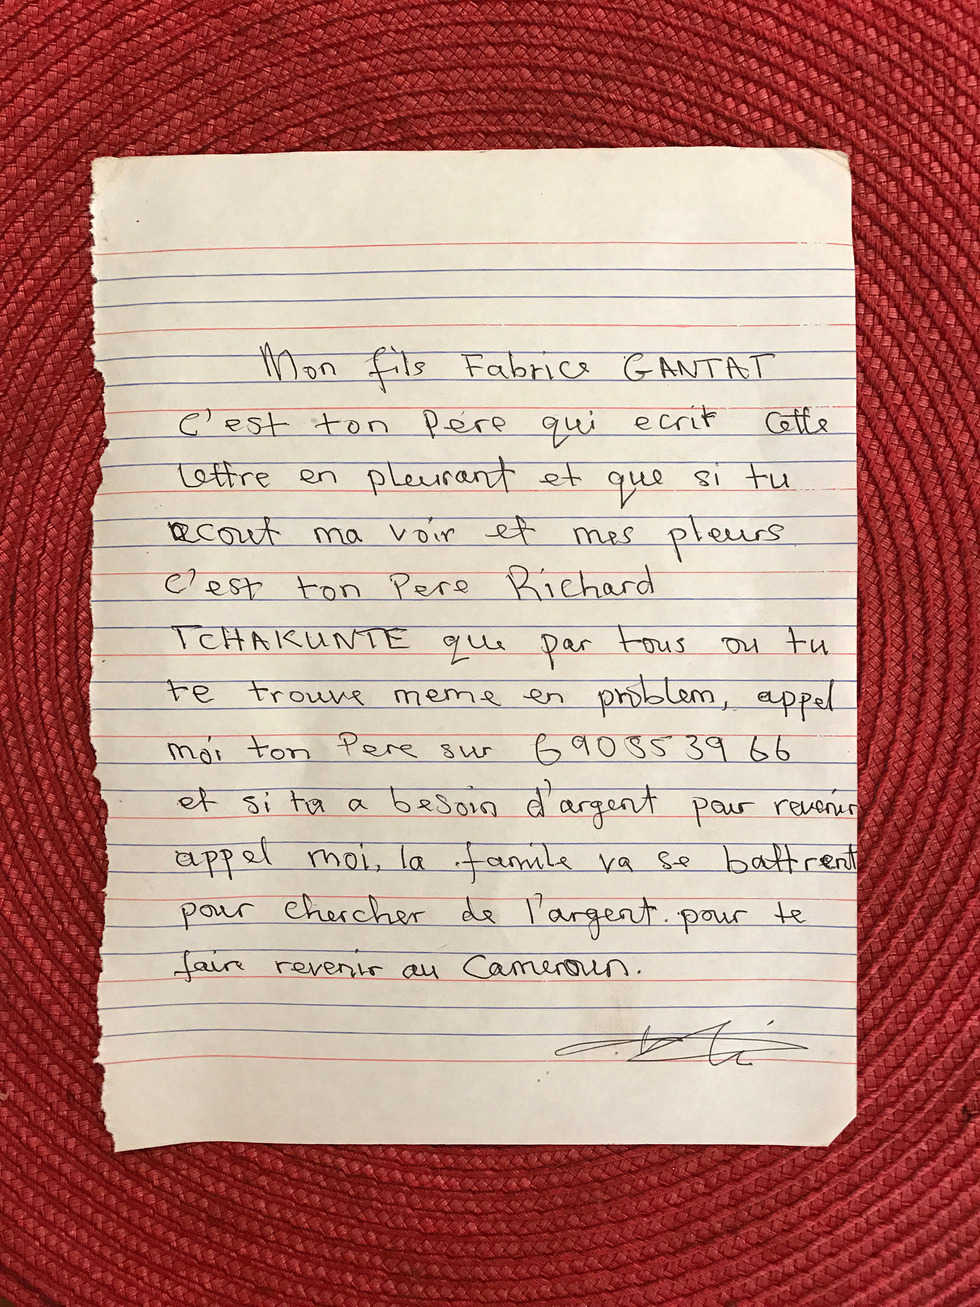 Mon fils Fabrice GANTAT
c'est ton Pére qui ecrit cette
lettre en pleurant et que si tu
ecout ma voir et mes pleurs
c'est ton Pere Richard
TCHAKUNTE que par tous ou tu
te trouve meme en problem, appel
moi ton Pere sur 690553966
et si ta a besoin d'argent pour revenir
appel moi, la famile va se battrent
pour chercher de l'argent pour te
faire revenir au Cameroun.